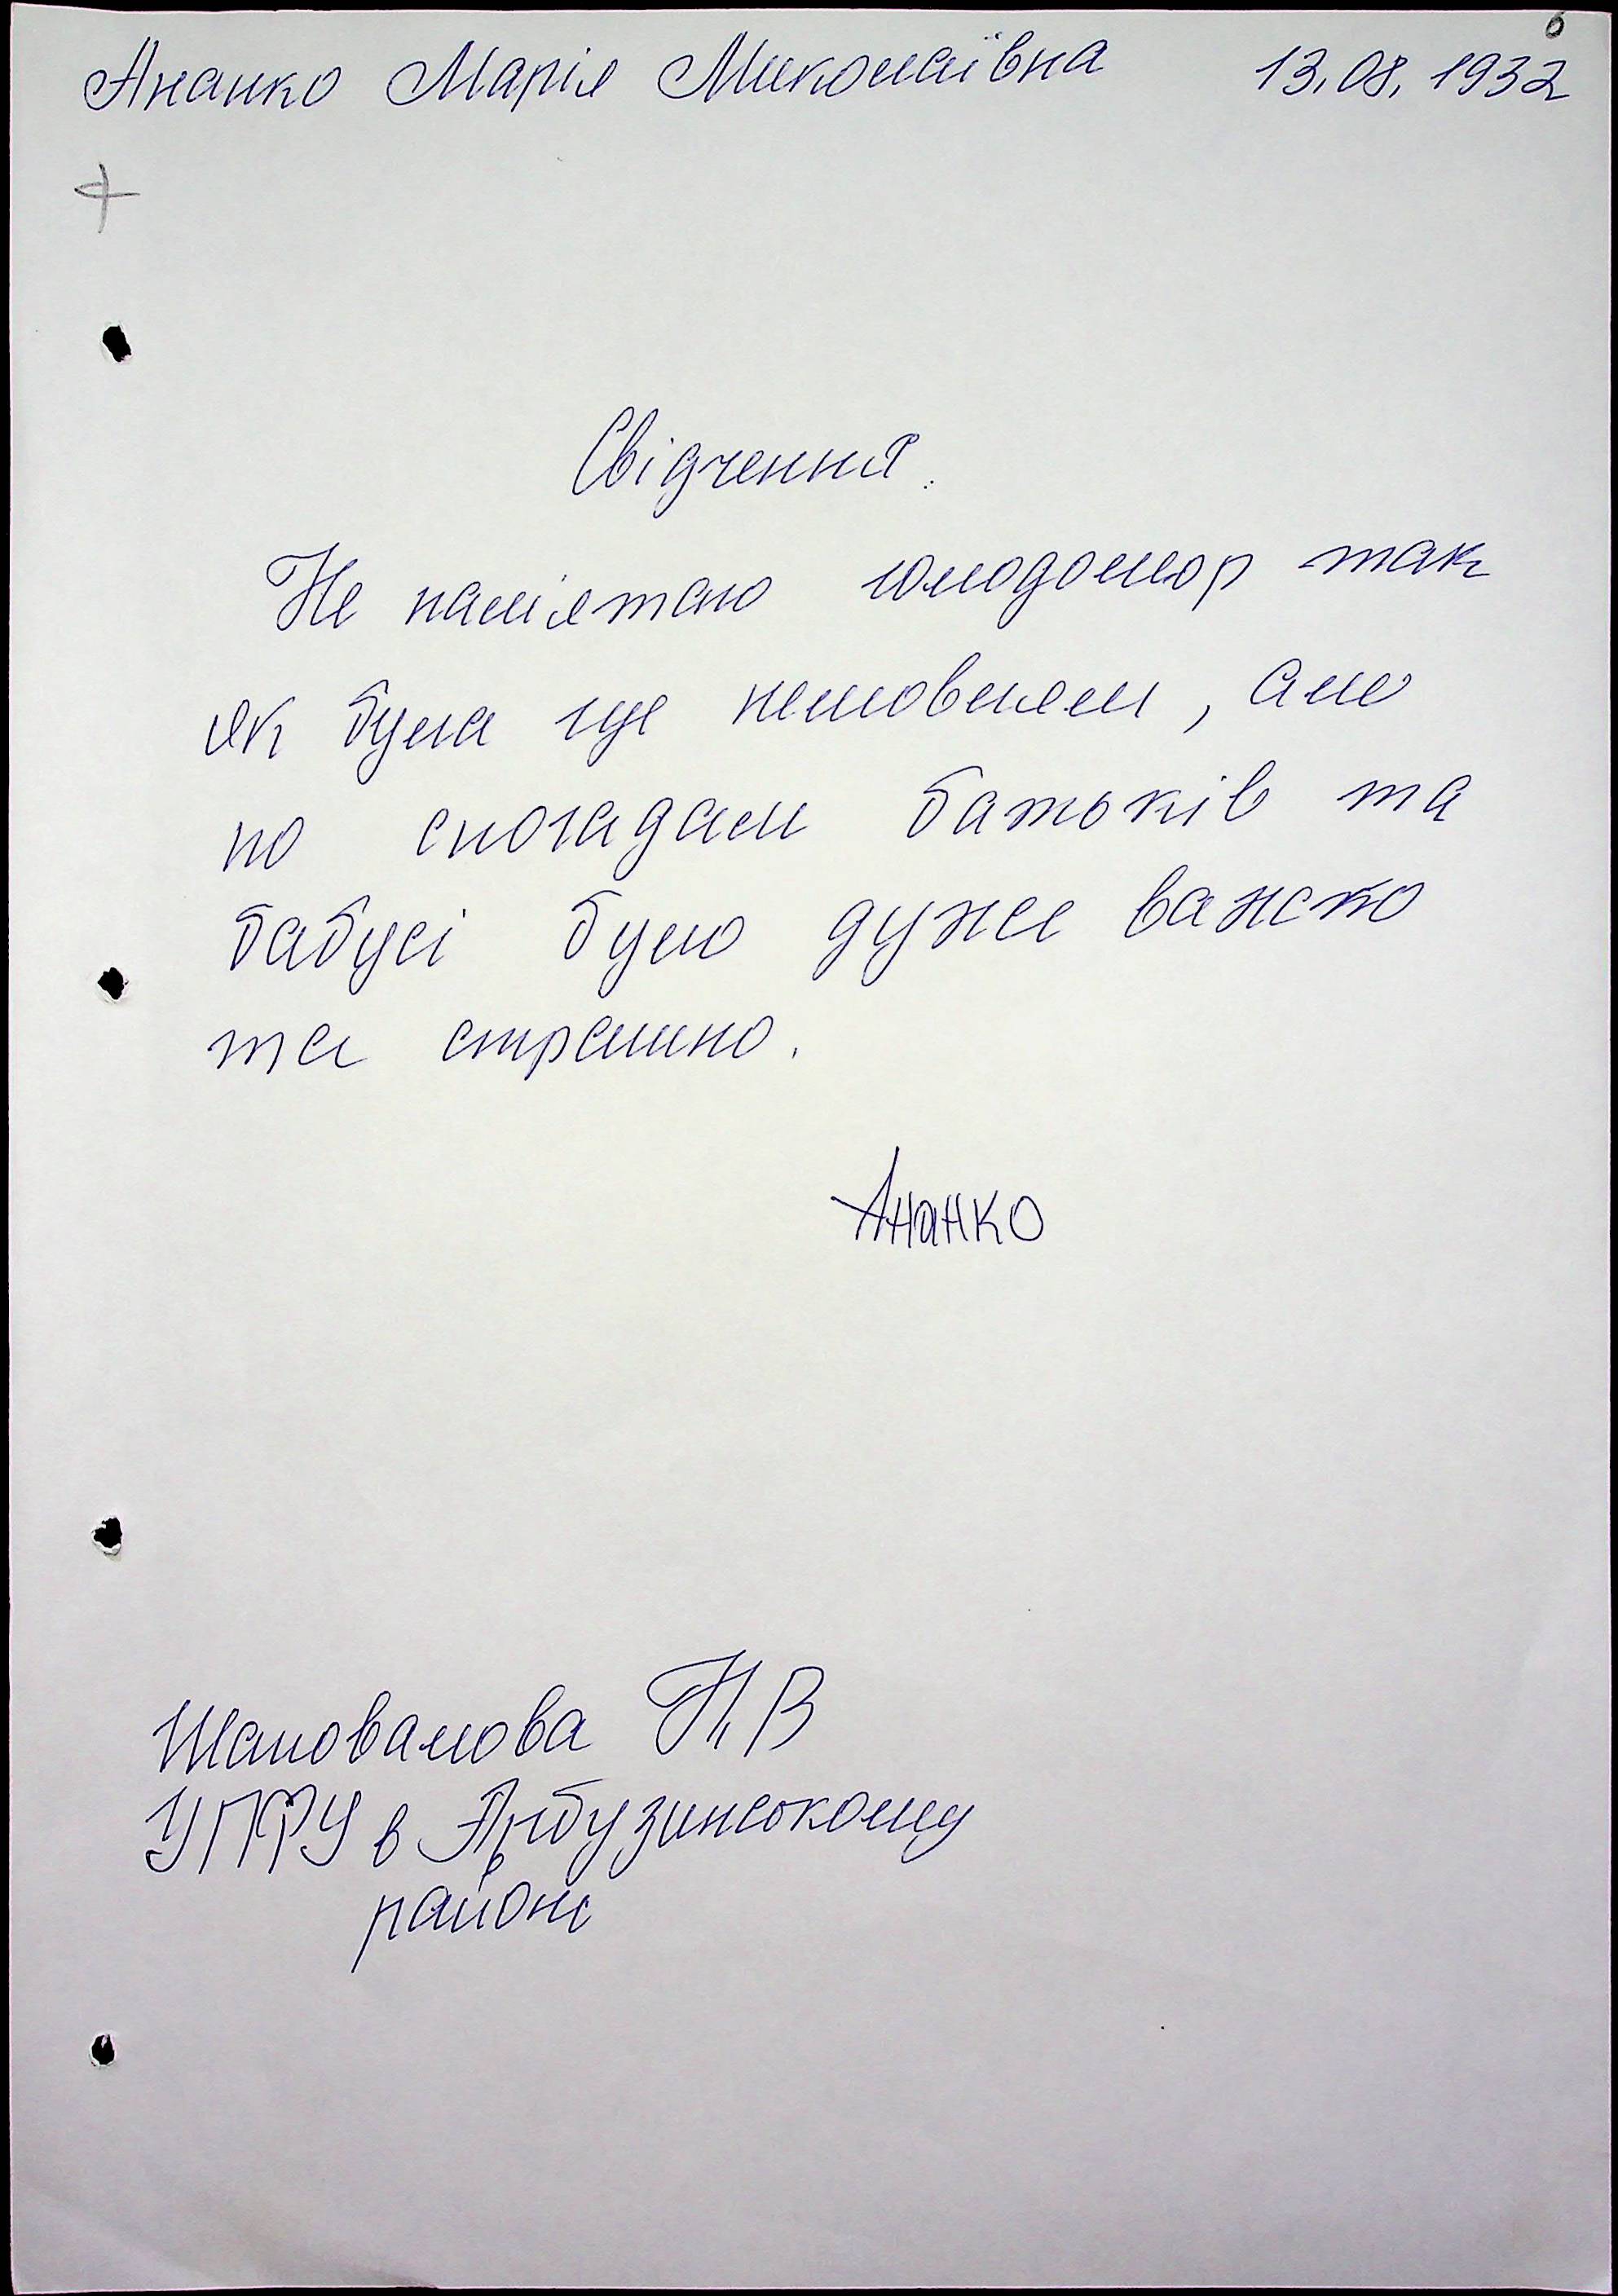 6
Ананко Марія Миколаївна 13.08.1932
+
Свідчення.
Не памієтаю голодомор так
як була ще немовлям, але
по спогадам батьків та
бабусі було дуже важко
та страшно.
Ананко
Шаповалова Н.В
УПФУ в Арбузинському
районі